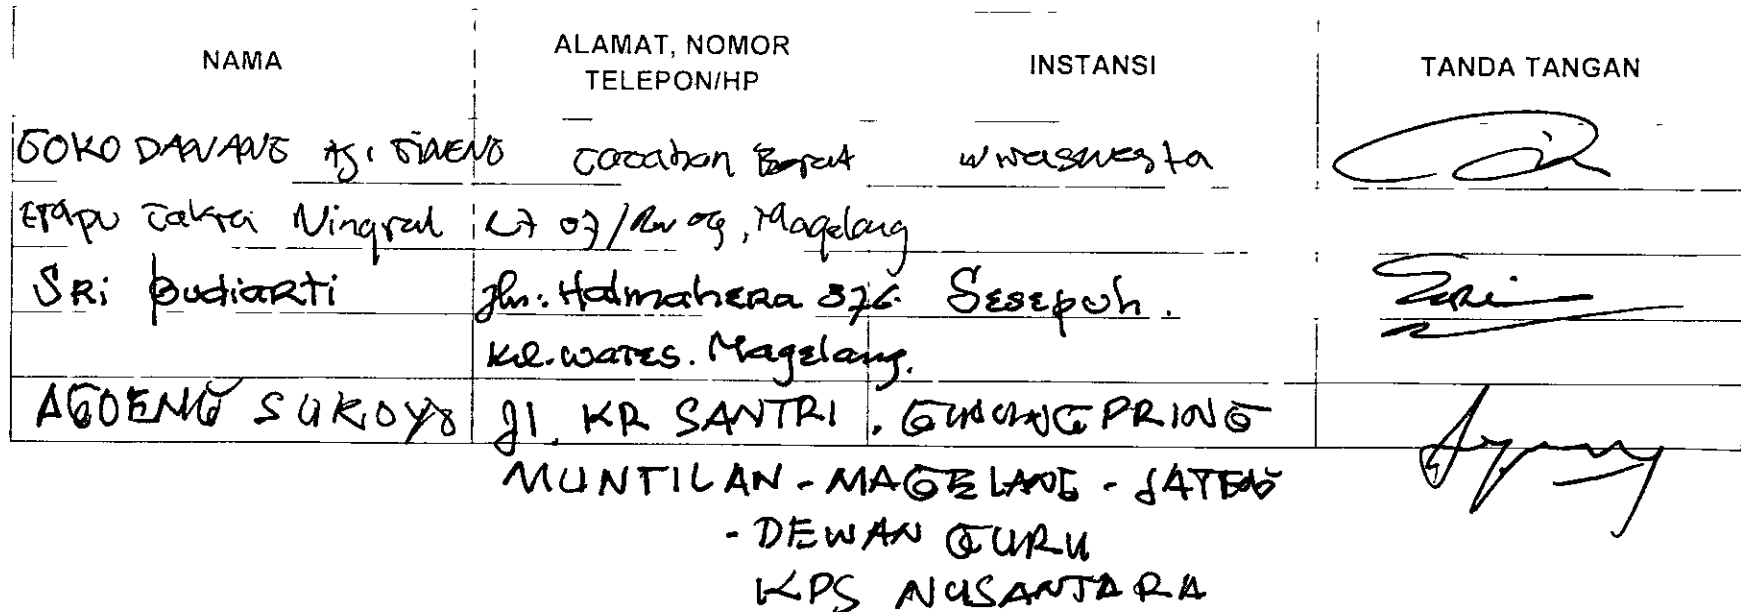 NAMA ALAMAT, NOMOR TELEPON/HP INSTANSI TANDA TANGAN
DANANG Barat wiraswasta
Ningrat Rt 07/Rw 09, Magelang
SRi BudiaRti Jln. HalmaheRa Sesepuh.
KR.wates. Magelang.
AGOENG SUKOYO Jl. KR SANTRI. GUNUNG PRING
MUNTILAN - MAGELANG - JATENG
- DEWAN GURU
KPS NUSANTARA